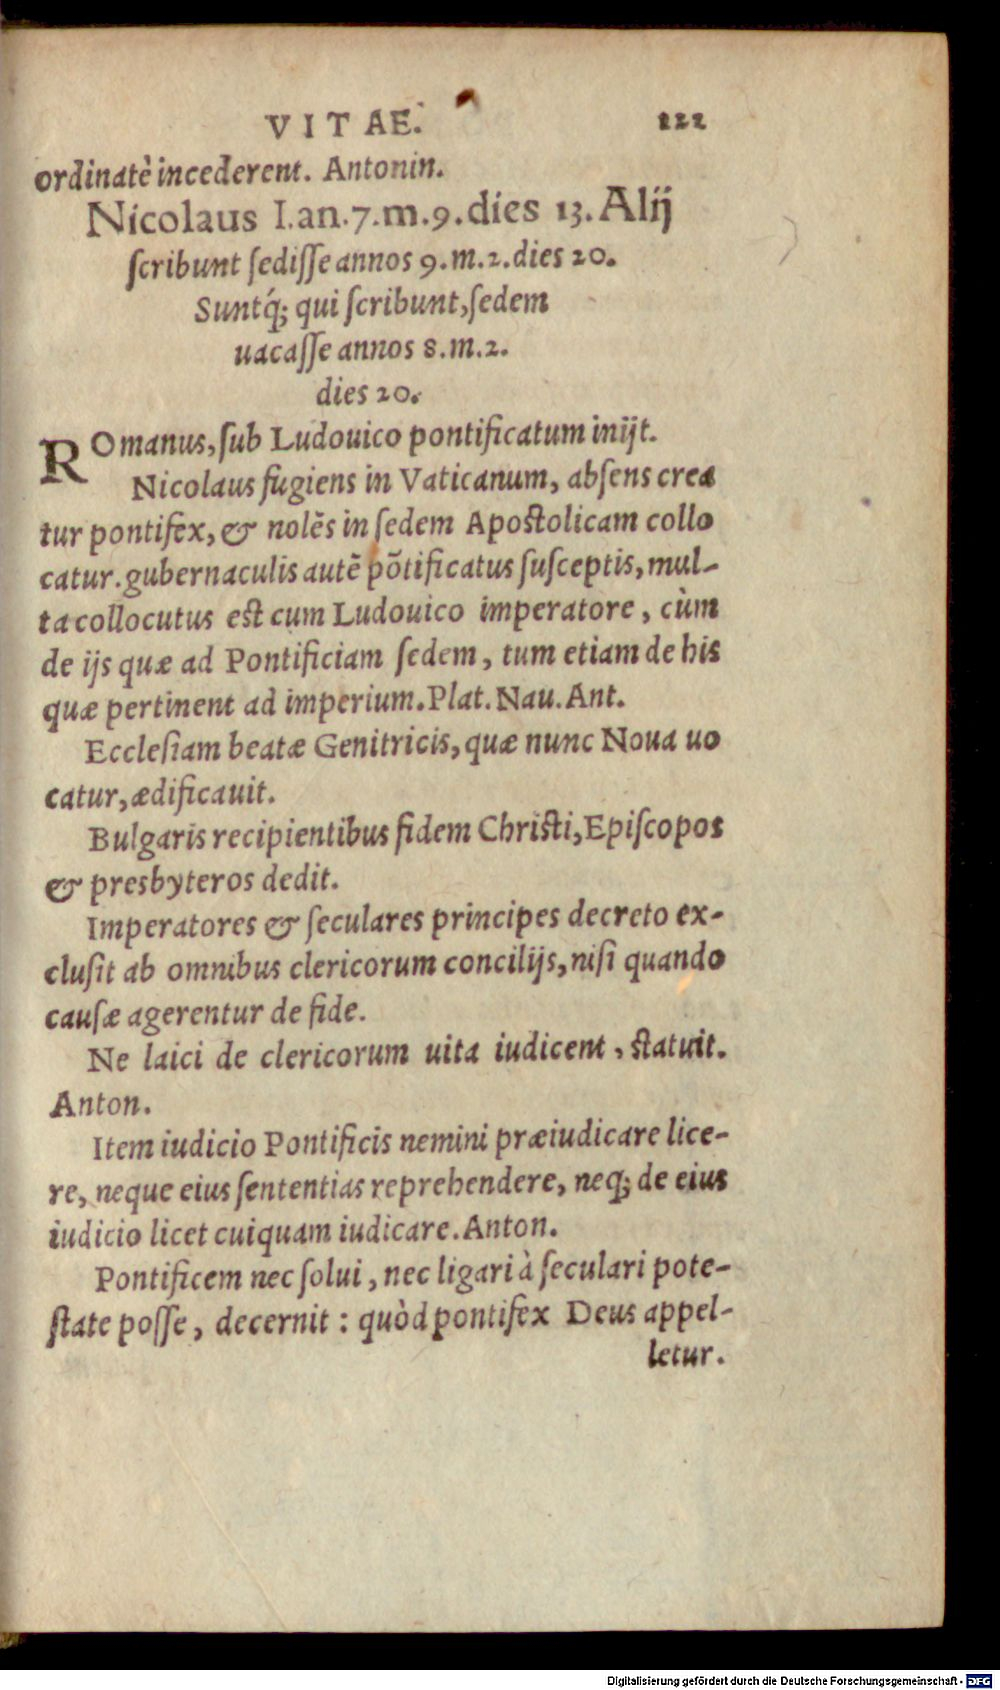 VITAE. 122
ordinatè incederent. Antonin.
Nicolaus I.an.7.m.9.dies 13. Alij
ſcribunt ſediſſe annos 9.m.2.dies 20.
Suntq́; qui ſcribunt, ſedem
uacaſſe annos 8.m.2.
dies 20.
ROmanus, ſub Ludouico pontificatum inijt.
Nicolaus fugiens in Vaticanum, abſens crea
tur pontifex, & nolẽs in ſedem Apostolicam collo
catur. gubernaculis autẽ põtificatus ſuſceptis, mul-
ta collocutus est cum Ludouico imperatore, cùm
de ijs quæ ad Pontificiam ſedem, tum etiam de his
quæ pertinent ad imperium. Plat. Nau. Ant.
Eccleſiam beatæ Genitricis, quæ nunc Noua uo
catur, ædificauit.
Bulgaris recipientibus fidem Christi, Epiſcopos
& presbyteros dedit.
Imperatores & ſeculares principes decreto ex-
cluſit ab omnibus clericorum concilijs, niſi quando
cauſæ agerentur de fide.
Ne laici de clericorum uita iudicent, statuit.
Anton.
Item iudicio Pontificis nemini præiudicare lice-
re, neque eius ſententias reprehendere, neq; de eius
iudicio licet cuiquam iudicare. Anton.
Pontificem nec ſolui, nec ligari à ſeculari pote-
state poſſe, decernit: quòd pontifex Deus appel-
letur.
Digitalisierung gefördert durch die Deutsche Forschungsgemeinschaft - DFG